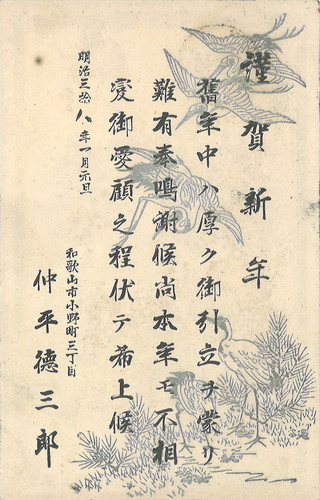 謹賀新年
舊年中ハ厚ク御引立ヲ蒙リ
難有奉鳴謝候尚本年モ不相
変御愛顧之程伏テ希上候
明治三拾八年一月元旦
和歌山市小野町三丁目
仲平德三郎